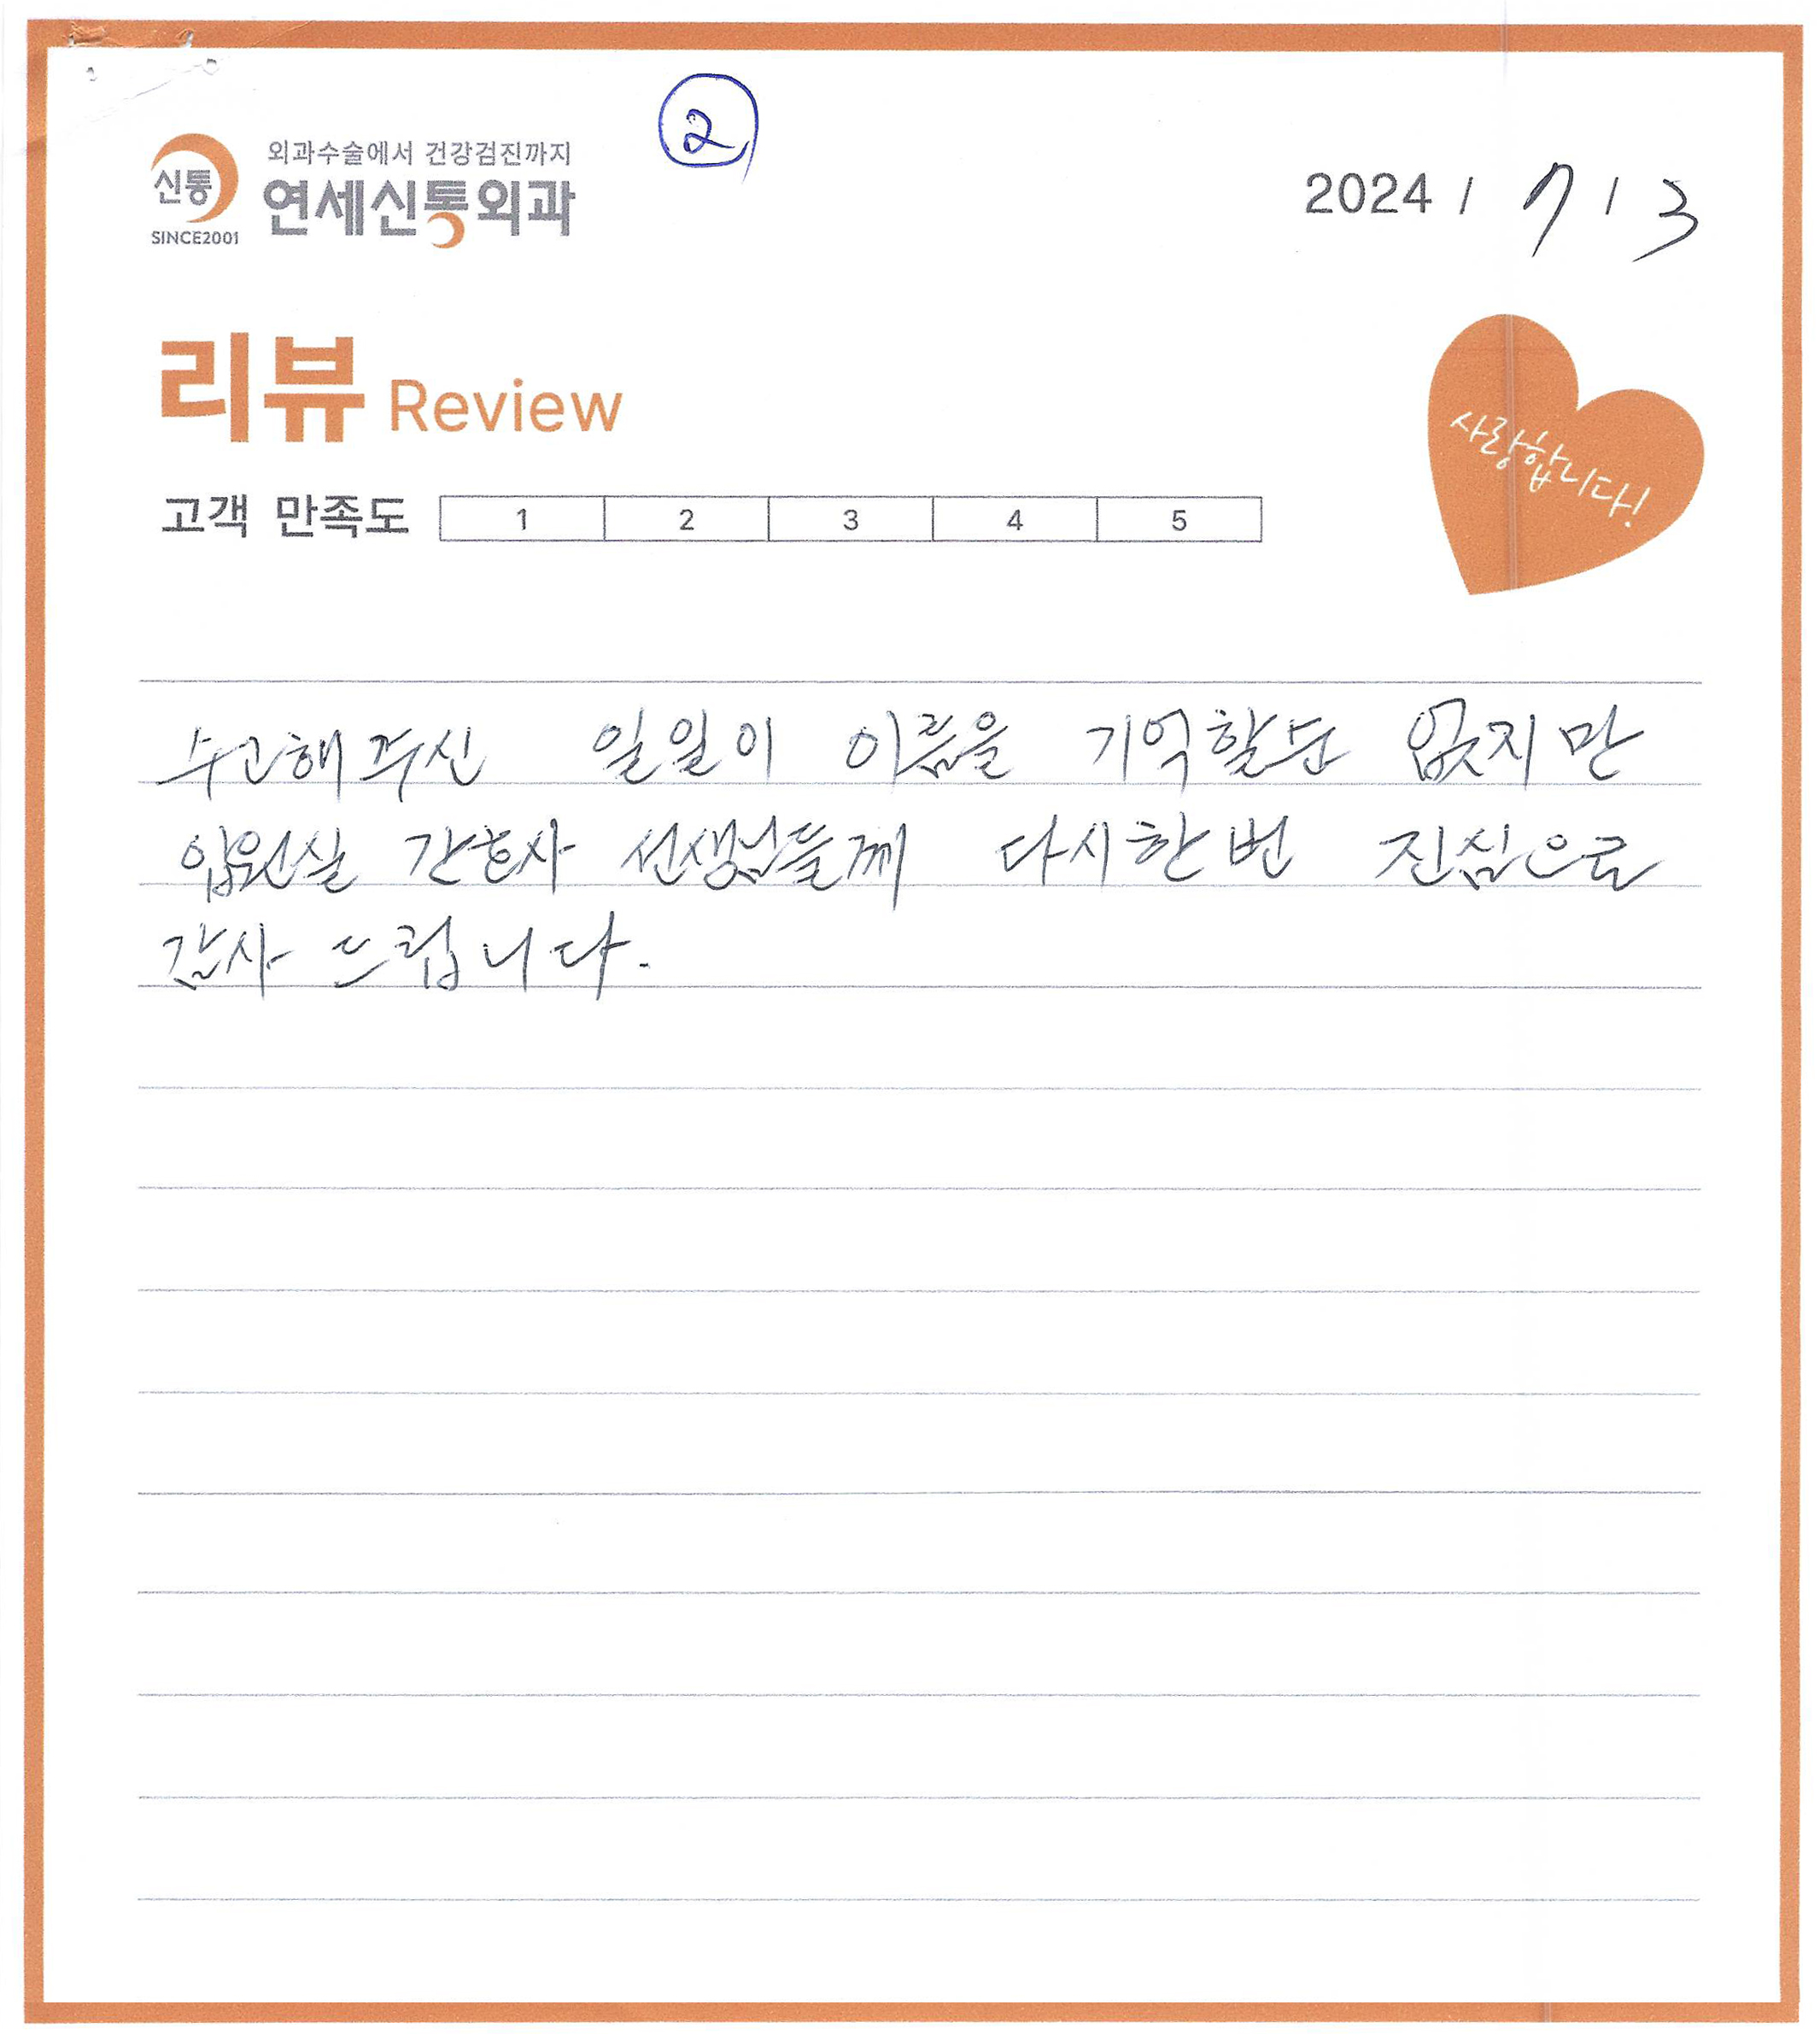 ②
외과수술에서 건강검진까지
신통 연세신통외과
SINCE2001
2024 / 7 / 3
리뷰 Review
사랑합니다!
고객 만족도 1 2 3 4 5
수고해주신 일일이 이름을 기억할순 없지만
입원실 간호사 선생님들께 다시한번 진심으로
감사 드립니다.